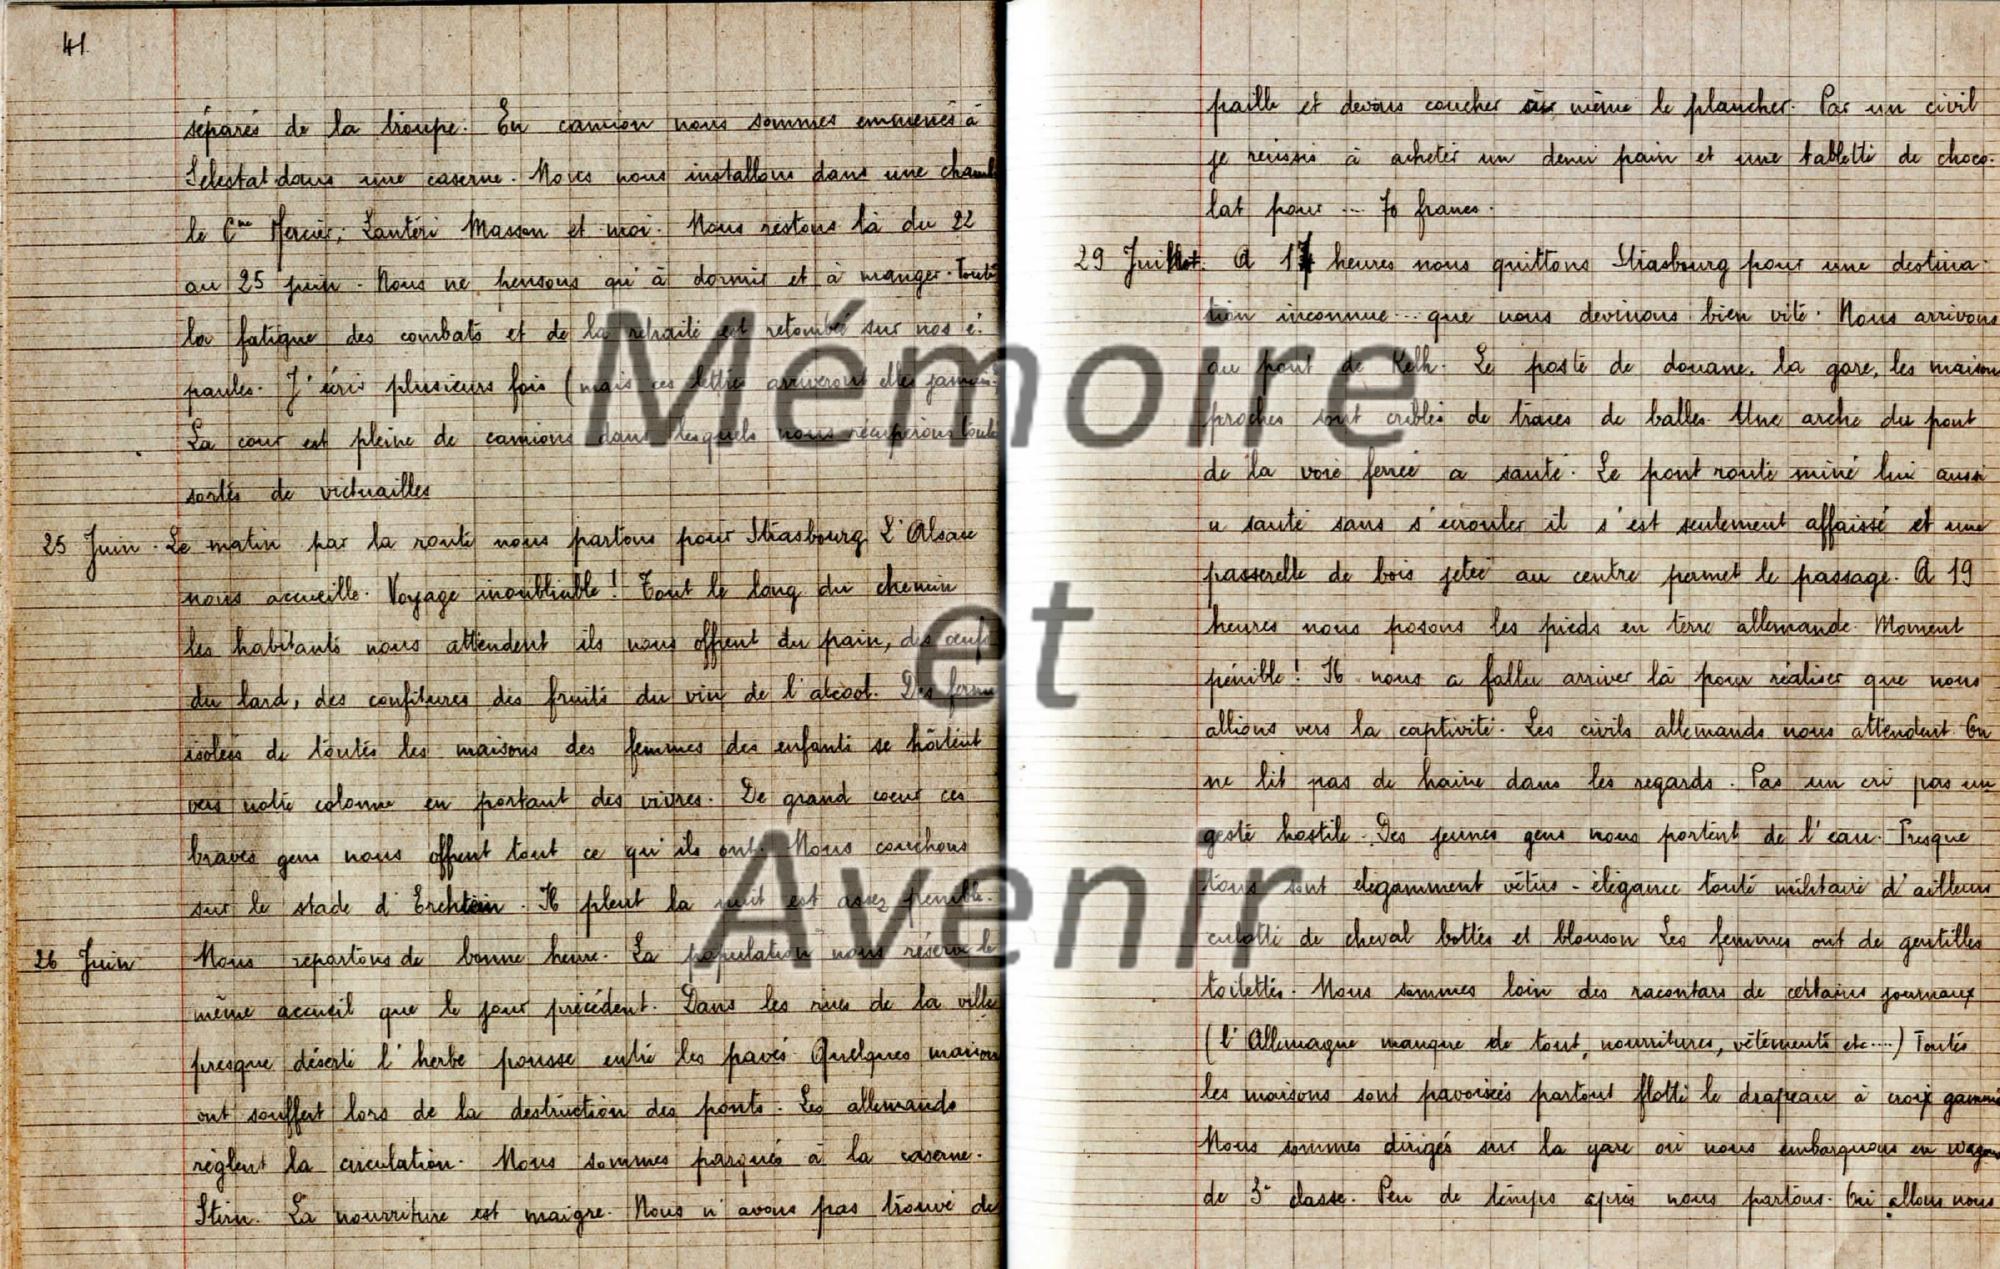 41
séparés de la troupe. En camion nous sommes emmenés à
Selestat dans une caserne. Nous nous installons dans une chamb
le Cne Mercier, Lantéri Masson et moi. Nous restons là du 22
au 25 juin. Nous ne pensons qu'à dormir et à manger. Toute
la fatigue des combats et de la retraite est retombée sur nos é-
paules. J'écris plusieurs fois (mais ces lettres arriveront elles jamais?
La cour est pleine de camions dans lesquels nous récupérons toute
sortes de victuailles
25 Juin. Le matin par la route nous partons pour Strasbourg L'Alsace
nous accueille. Voyage inoubliable! Tout le long du chemin
les habitants nous attendent ils nous offrent du pain, des œufs
du lard, des confitures des fruits du vin de l'alcool. Des ferme
isolées de toutes les maisons des femmes des enfants se hâtent
vers notre colonne en portant des vivres. De grand cœur ces
braves gens nous offrent tout ce qu'ils ont. Nous couchons
sur le stade d'Erchtein. Il pleut la nuit est assez penible.
26 Juin Nous repartons de bonne heure. La population nous réserve le
même accueil que le jour précédent. Dans les rues de la ville
presque déserte l'herbe pousse entre les pavés Quelques maison
ont souffert lors de la destruction des ponts. Les allemands
règlent la circulation. Nous sommes parqués à la caserne.
Stirn. La nourriture est maigre. Nous n'avons pas trouvé de
paille et devons coucher à même le plancher. Par un civil
je reussis à acheter un demi pain et une tablette de choco-
lat pour ... 70 francs.
29 Juillet. A 17 heures nous quittons Strasbourg pour une destina-
tion inconnue... que nous devinons bien vite. Nous arrivons
au pont de Kelh. Le poste de douane, la gare, les maison
proches sont criblés de traces de balles. Une arche du pont
de la voie ferrée a sauté. Le pont route miné lui aussi
a sauté sans s'ecrouler il s'est seulement affaissé et une
passerelle de bois jetée au centre permet le passage. A 19
heures nous posons les pieds en terre allemande. Moment
pénible! Il nous a fallu arriver là pour réaliser que nous
allions vers la captivité. Les civils allemands nous attendent On
ne lit pas de haine dans les regards. Pas un cri pas un
geste hostile. Des jeunes gens nous portent de l'eau. Presque
tous sont elegamment vêtus - élégance toute militaire d'ailleurs
culotte de cheval bottes et blouson Les femmes ont de gentilles
toilettes. Nous sommes loin des racontars de certains journaux
(l'Allemagne manque de tout, nourritures, vêtements etc....) Toutes
les maisons sont pavoisées partout flotte le drapeau à croix gammé
Nous sommes dirigés sur la gare où nous embarquons en wagons
de 3e classe. Peu de temps après nous partons. Où allons nous
Mémoire
et
Avenir